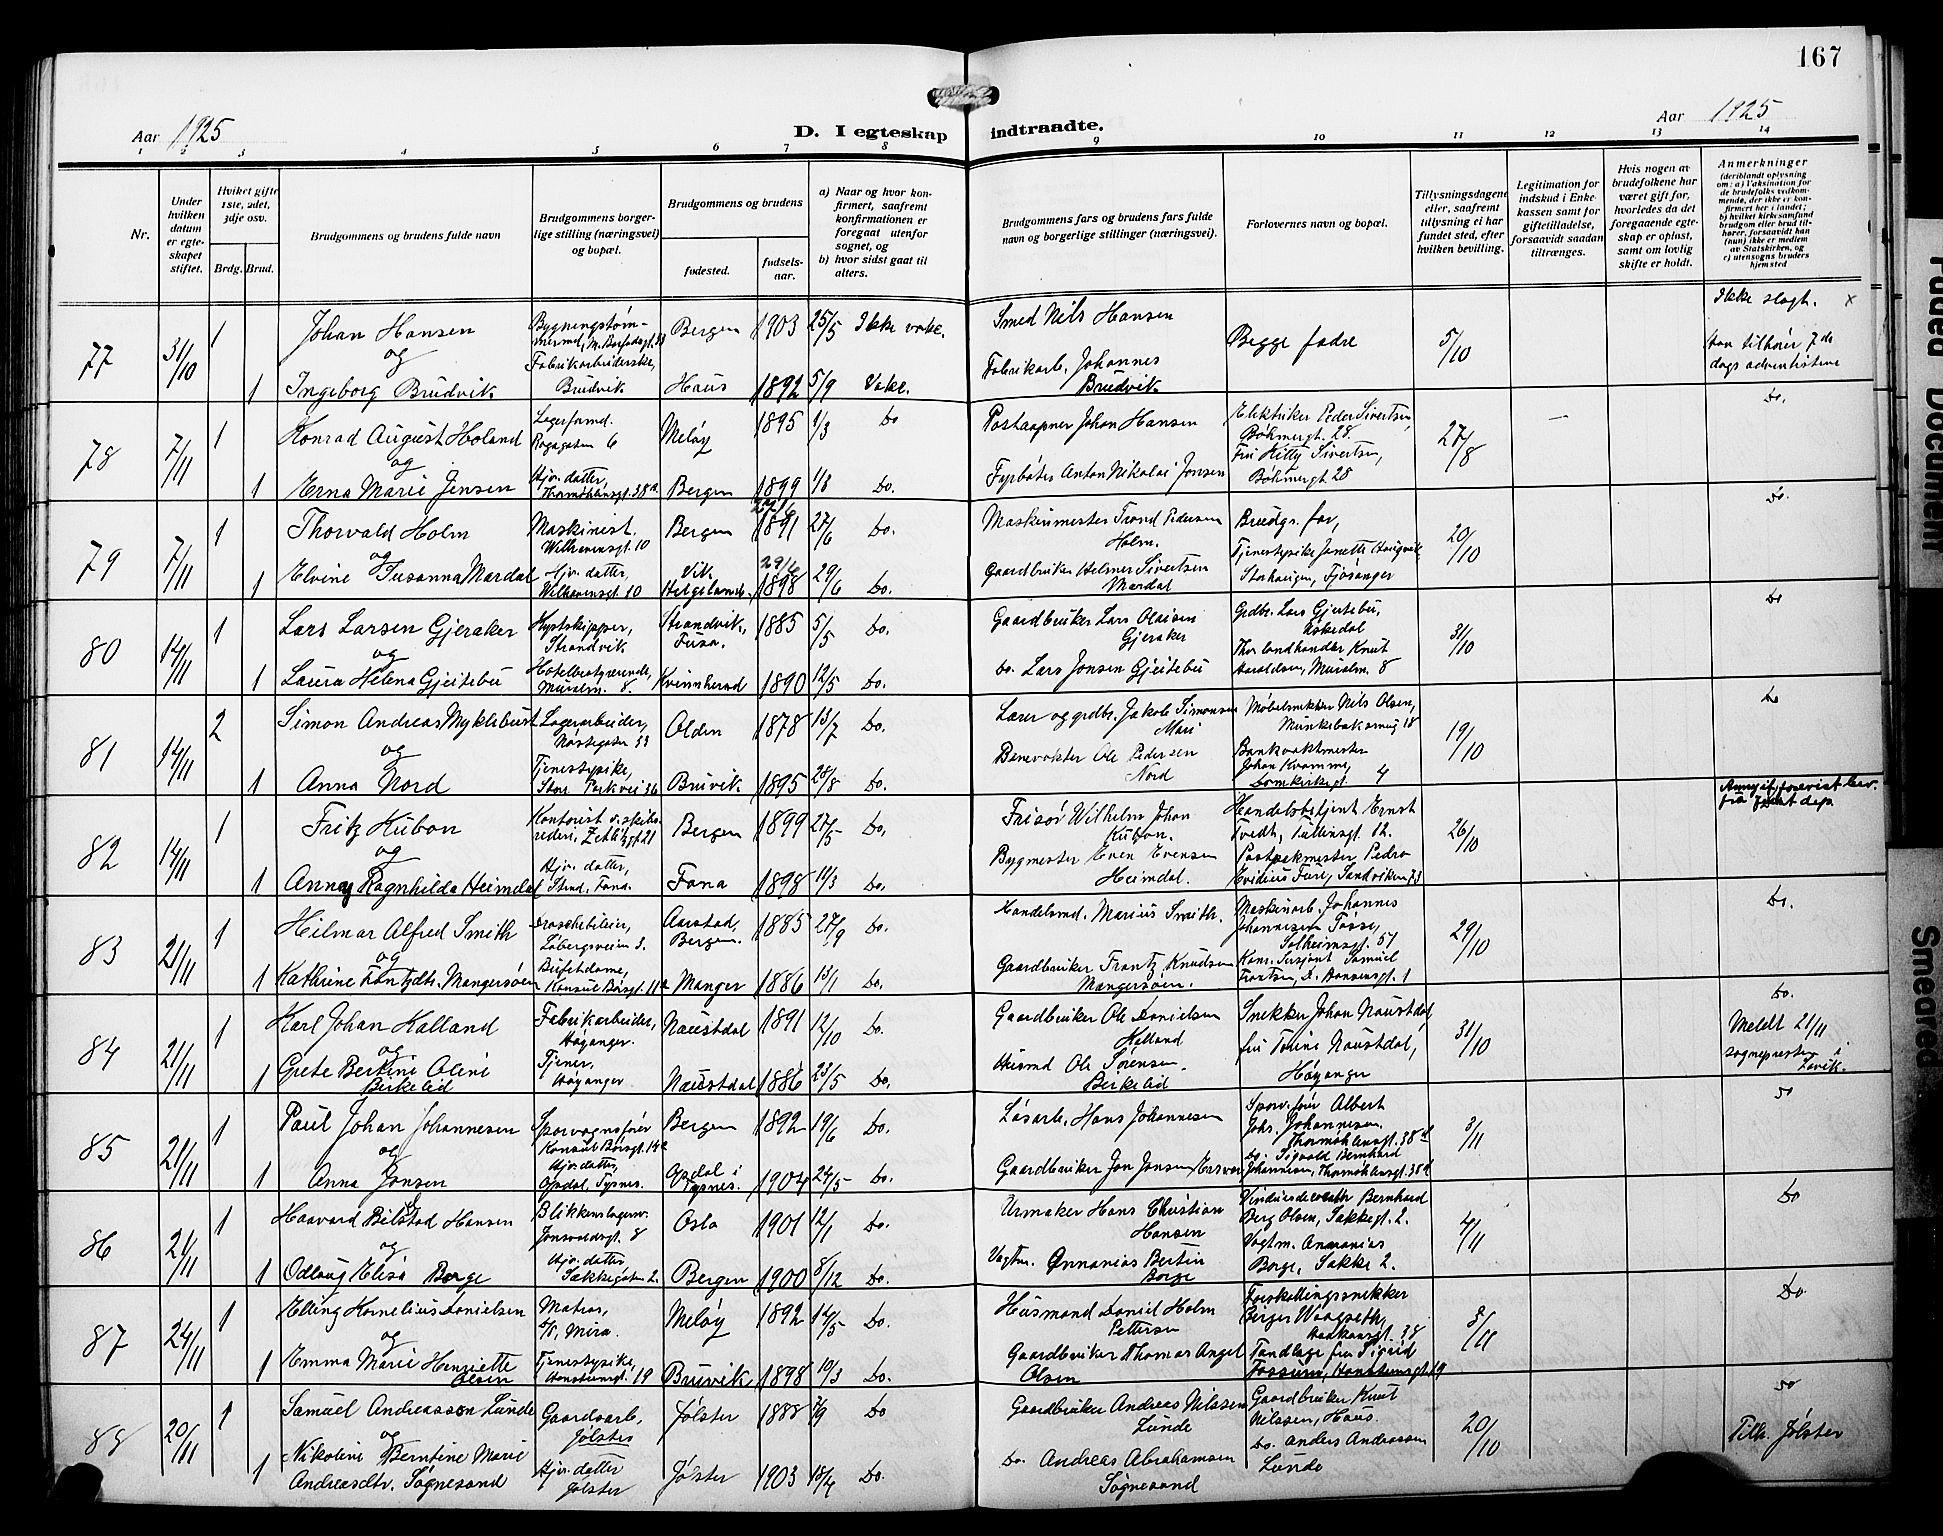 167
Aar 1925
D. I egteskap indtraadte.
Aar 1925
1 2 3 4 5 6 7 8 9 10 11 12 13 14
Nr.
Under hvilken datum er egteskapet stiftet.
Hvilket gifte 1ste, 2det, 3dje osv.
Brdg. Brud.
Brudgommens og brudens fulde navn
Brudgommens borgerlige stilling (næringsvei) og bopæl.
Brudgommens og brudens
fødested.
fødselsaar.
a) Naar og hvor konfirmert, saafremt konfirmationen er foregaat utenfor sognet, og
b) hvor sidst gaat til alters.
Brudgommens fars og brudens fars fulde navn og borgerlige stillinger (næringsvei).
Forlovernes navn og bopæl.
Tillysningsdagene eller, saafremt tillysning ei har fundet sted, efter hvilken bevilling.
Legitimation for indskud i Enkekassen samt for giftetilladelse, forsaavidt saadan tiltrænges.
Hvis nogen av brudefolkene har været gift før, hvorledes da det foregaaende egteskap er opløst, samt om lovlig skifte er holdt.
Anmerkninger
(deriblandt oplysning om: a) Vaksination for de brudefolks vedkommende, der ikke er konfirmert her i landet; b) hvilket kirkesamfund brudgom eller brud tilhører, forsaavidt han (hun) ikke er medlem av Statskirken, og c) utensogns bruders hjemsted
77 31/10 1 Johan Hansen Bergen 1903 25/5 Ikke vake. Smed Nils Hansen Begge fædre 5/10 Ikke slegt. x
og Fabrikarbeiderske, Han tilhører 7de
1 Ingeborg Brudvik Brudvik Haus 1892 5/9 Vake. Fabrikarb. Johannes Brudvik dags adventistene
78 7/11 1 Konrad August Holand Lagerformd. Meløy 1895 1/3 Do Postaapner Johan Hansen Elektriker Peder Sivertsen, Bøhmergt. 28. 27/8 Do.
og
1 Erna Marie Jensen Hjv. datter, Thormøhlensgt. 38a Bergen 1899 Do. Fyrbøter Anton Nikolai Jensen Fru Kitty Sivertsen, Bøhmergt 28
79 7/11 1 Thorvald Holm Maskinist. Wilhavensgt. 10 Bergen 1891 27/6 Do. Maskinmester Trond Pedersen Holm. Brudgs. far, 20/10 Do.
og
1 Elvine Susanna Mardal Hjv. datter, Wilhavensgt. 10 Vik, Helgeland. 1898 29/6 Do. Gaardbruker Helmer Sivertsen Mardal Tjenestepike Janette Haugvik, Storhaugen, Fjøsanger
80 14/11 1 Lars Larsen Gjeraker Kystskipper, Strandvik Strandvik, Fusa. 1885 5/5 Do. Gaardbruker Lars Olaisen Gjeraker Grdbr. Lars Gjeitebu, 31/10 Do
og
1 Laura Helena Gjeitebu Muralm. 8. Kvinnherad 1890 12/5 Do. Do. Lars Jonsen Gjeitebu Knut Haraldsen, Muralm. 8
81 14/11 2 Simon Andreas Myklebust Lagerarbeider, Nøstegaten 53 Olden 1878 13/7 Do. Lærer og grdbr. Jakob Simonsen Møbelsnekker Nils Olsen, Munkebæksmug 18 19/10 Do
og
1 Anna Nord Tjenestepike, Store Parkvei 36 Bruvik 1895 28/8 Do. Banevokter Ole Pedersen Nord Bankvaktmester Johan Kvamme, Domkirkegt. 4
82 14/11 1 Fritz Kubon Kontorist Bergen 1899 27/5 Do. Frisør Wilhelm Johan Kubon. Handelsbetjent Ernst Tvedt, 26/10
og
1 Anna Ragnhilda Heimdal Hjv. datter, Fana. Fana 1898 11/3 Do. Bygmester Even Evensen Heimdal. Sandviken 73
83 21/11 1 Hilmar Alfred Smith Droscheeier, Løbergsveien 3. Aarstad, Bergen. 1885 27/9 Do. Handelsmd. Marius Smith. Maskinarb. Johannes Johannesen Fosse, Solheimsgt. 57 29/10 Do.
og
1 Kathrine Frantzdtr. Mangersøen Bufetdame, Konsul Børsgt. 11a Manger 1886 13/1 Do. Gaardbruker Frantz Knudsen Mangersøen. Samuel Frantsen,
84 21/11 1 Karl Johan Kalland Fabrikarbeider, Høyanger. Naustdal 1891 12/10 Gaardbruker Ole Danielsen Kalland Snekker Johan Naustdal, 31/10 Do.
og Meldt 21/11
1 Grete Berkine Oline Birkelid Tjener, Høyanger Naustdal 1886 23/5 Do. Husmd Ole Sørensen. Birkelid fru Torine Naustdal, Høyanger sognepresten i Lavik.
85 21/11 1 Paul Johan Johannesen Sporvognsfører Konsul Børsgt. 14a Bergen 1892 19/6 Do. Løsarb. Hans Johannesen Sporv.fører Albert Johs. Johannesen, Thormøhlensgt. 38d 3/11 Do
og
1 Anna Jonsen Hjv. datter, Opdal, Tysnes. Opdal i Tysnes. 1904 24/5 Do. Gaardbruker Jon Jonsen Do. Sigvald Bernhard Johannesen, Thormøhlensgt. 38d
86 21/11 1 Haavard Bilstad Hansen Blikkenslagersv. Oslo 1901 12/1 Do. Urmaker Hans Christian Hansen Bernhard Berg Olsen, Sækkegt. 2. 4/11 Do
og
1 Odlaug Elisa Borge Hjv. datter, Sækkegaten 2. Bergen 1900 8/12 Do. Vagtm. Annanias Bertin Borge Vagtm. Annanias Borge, Sækkegt 2.
87 24/11 1 Elling Kornelius Danielsen Matros, D/S. Mira. Meløy 1892 14/5 Do. Husmand Daniel Holm Pettersen Forskallingssnekker Berger Waagseth, Haakonsgt. 38 3/11 Do
og
1 Emma Marie Henriette Olsen Tjenestepike, Bruvik 1898 10/3 Do. Gaardbruker Thomas Angel Olsen Tandlæge fru Sigrid Fossum,
88 20/11 1 Samuel Andreassøn Lunde Gaardsarb, Jølster Jølster 1888 Do Gaardbruker Andreas Nilssen Lunde Gaardbruker Knut Nilssen, Haus. 20/10 Do
og Tilh. Jølster
1 Nikoline Berntine Marie Andreasdtr. Søgnesand Hjv. datter Jølster Jølster 1903 18/4 Do. Do. Andreas Abrahamsen Søgnesand Do. Anders Andreassen Lunde
Faded Document
Smeared